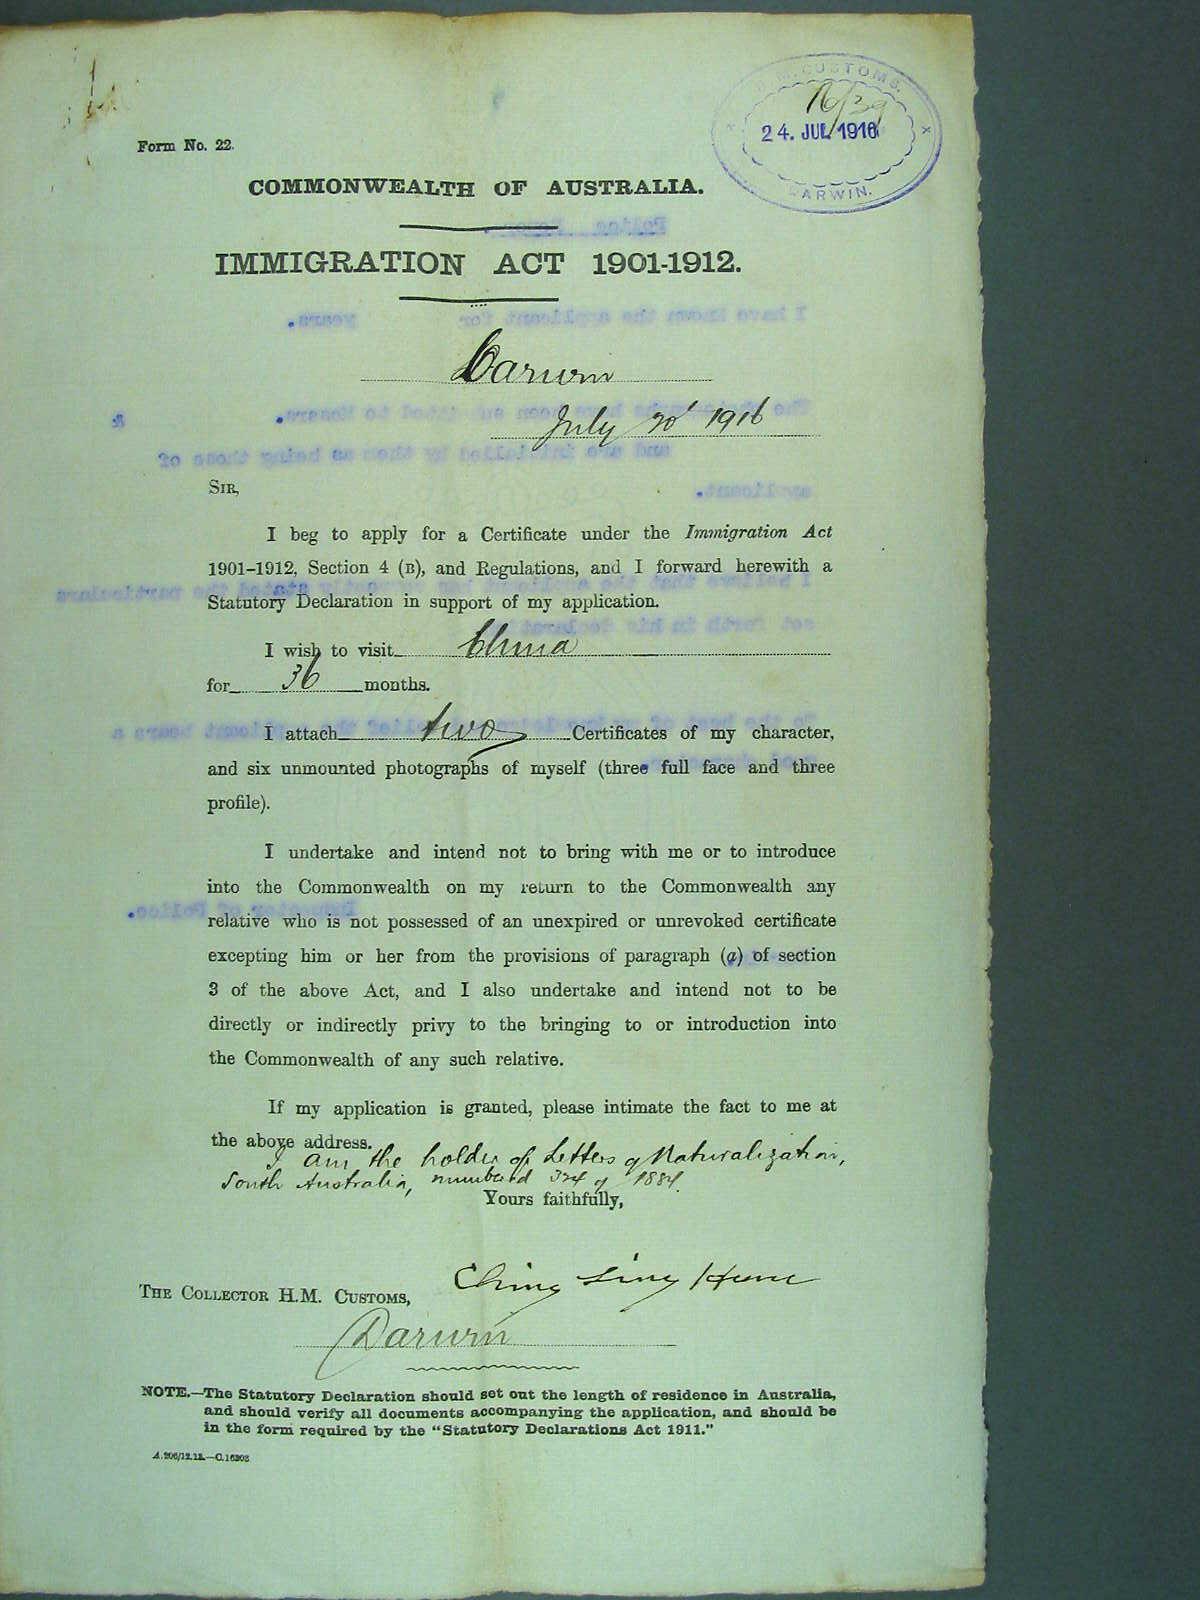 H.M. CUSTOMS.
16/39
24. JUL 1916
DARWIN.
Form No. 22.
COMMONWEALTH OF AUSTRALIA.
IMMIGRATION ACT 1901-1912.
Darwin
July 20 1916
SIR,
I beg to apply for a Certificate under the Immigration Act
1901–1912, Section 4 (B), and Regulations, and I forward herewith a
Statutory Declaration in support of my application.
I wish to visit China
for 36 months.
I attach two Certificates of my character,
and six unmounted photographs of myself (three full face and three
profile).
I undertake and intend not to bring with me or to introduce
into the Commonwealth on my return to the Commonwealth any
relative who is not possessed of an unexpired or unrevoked certificate
excepting him or her from the provisions of paragraph (a) of section
3 of the above Act, and I also undertake and intend not to be
directly or indirectly privy to the bringing to or introduction into
the Commonwealth of any such relative.
If my application is granted, please intimate the fact to me at
the above address.
I am the holder of Letters of Naturalization,
South Australia, numbered 324 of 1884.
Yours faithfully,
Ching Sing
THE COLLECTOR H.M. CUSTOMS,
Darwin
NOTE.—The Statutory Declaration should set out the length of residence in Australia,
and should verify all documents accompanying the application, and should be
in the form required by the "Statutory Declarations Act 1911."